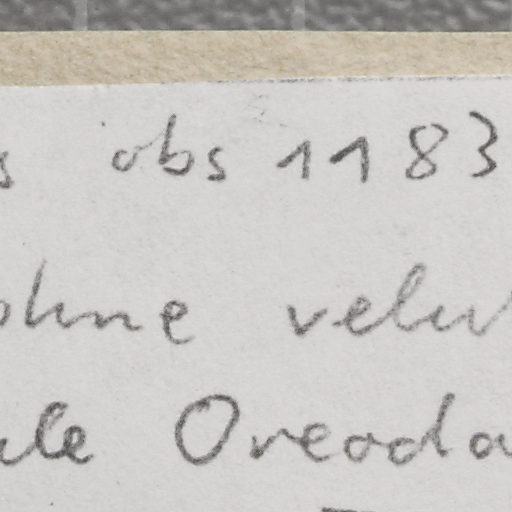 s obs 1183
ohne velu
ale Oreoda